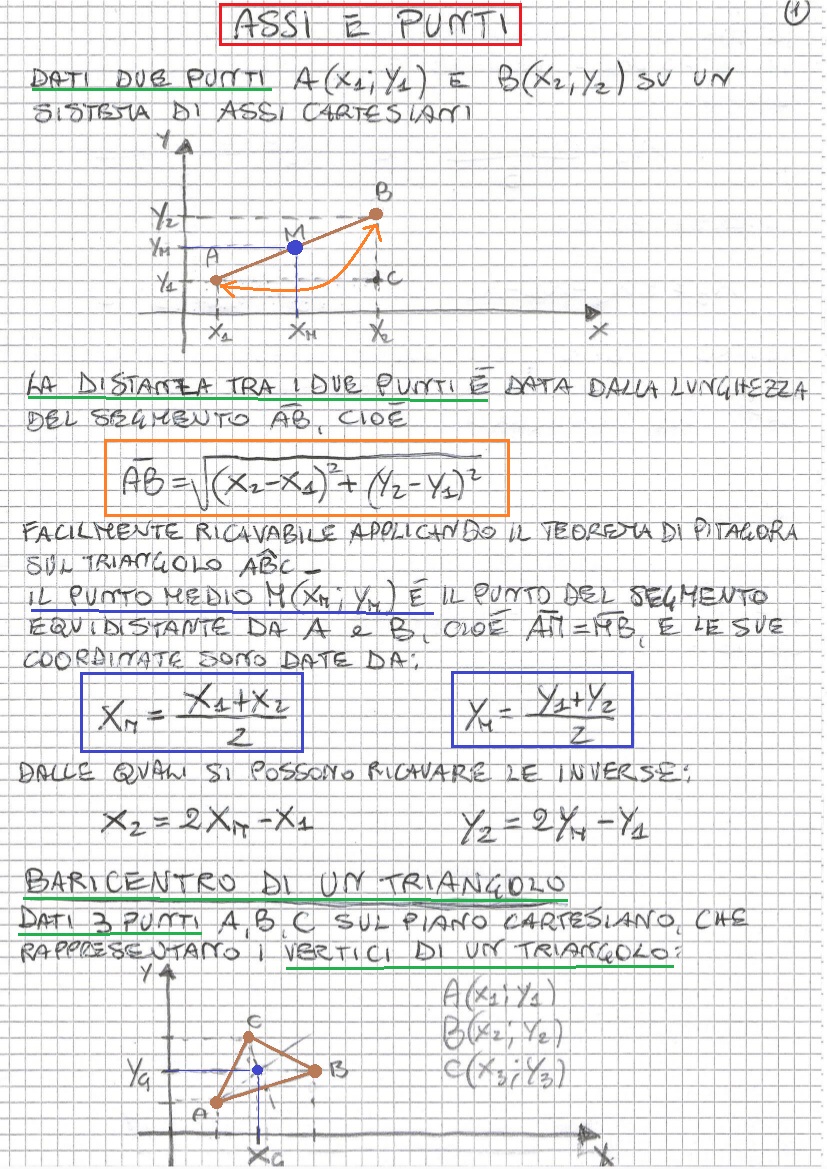 1
ASSI E PUNTI
DATI DUE PUNTI A(X1; Y1) E B(X2; Y2) SU UN
SISTEMA DI ASSI CARTESIANI
Y
B
Y2
M
YM
A
Y1
C
X1 XM X2 X
LA DISTANZA TRA I DUE PUNTI È DATA DALLA LUNGHEZZA
DEL SEGMENTO A̅B̅, CIOÈ
A̅B̅ = √((X2-X1)² + (Y2-Y1)²)
FACILMENTE RICAVABILE APPLICANDO IL TEOREMA DI PITAGORA
SUL TRIANGOLO AB̂C -
IL PUNTO MEDIO M(XM; YM) È IL PUNTO DEL SEGMENTO
EQUIDISTANTE DA A e B, CIOÈ A̅M̅ = M̅B̅, E LE SUE
COORDINATE SONO DATE DA:
XM = (X1+X2)/2 YM = (Y1+Y2)/2
DALLE QUALI SI POSSONO RICAVARE LE INVERSE:
X2 = 2XM - X1 Y2 = 2YM - Y1
BARICENTRO DI UN TRIANGOLO
DATI 3 PUNTI A, B, C SUL PIANO CARTESIANO, CHE
RAPPRESENTANO I VERTICI DI UN TRIANGOLO:
Y
A(X1; Y1)
B(X2; Y2)
C(X3; Y3)
C
YG
B
A
XG X